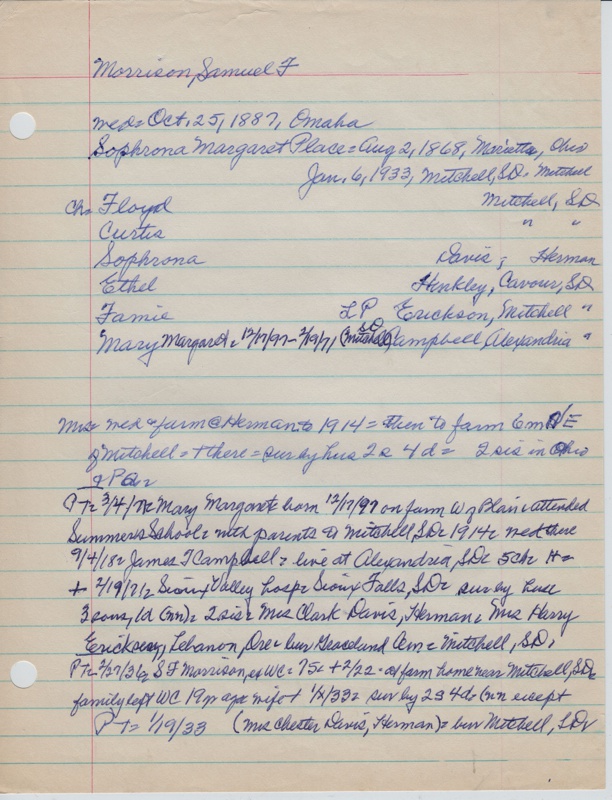 Morrison, Samuel F
med= Oct. 25, 1887, Omaha
Sophrona Margaret Place = Aug 2, 1868, Marietta, Ohio
Jan. 6, 1933, Mitchell, S.D. Mitchell
Ch= Floyd Mitchell, S.D.
Curtis " "
Sophrona Davis, Herman
Ethel Hinkley, Cavour, S.D.
Famie L P Erickson, Mitchell "
Mary Margaret = 12/17/97 - 2/19/71 (Mitchell SD) Campbell, Alexandria "
Mrs= med & farm @ Herman to 1914 = then to farm 6 m N/E
of Mitchell = + there = sur by hus 2s 4d = 2 sis in Ohio
& Pa=
PT= 3/4/71= Mary Margaret= born 12/17/97 on farm W of Blair= attended
Summers School= with parents to Mitchell, SD= 1914= med there
9/4/18= James T Campbell= live at Alexandria, SD= 5ch=
+ 2/19/71= Sioux Valley hosp= Sioux Falls, S.D.= sur by hus
3 sons, 1d (nn)= 2 sis= Mrs Clark Davis, Herman, Mrs Harry
Erickson, Lebanon, Ore= bur Graceland Cem= Mitchell, SD.
PT= 2/27/36= S F Morrison, ex WC= 75= + 2/22= at farm home near Mitchell, SD=
family left WC 19 y ago= wife + 1/6/33= sur by 2s 4d= (nn except
PT= 1/19/33 (Mrs Chester Davis, Herman)= bur Mitchell, SD=